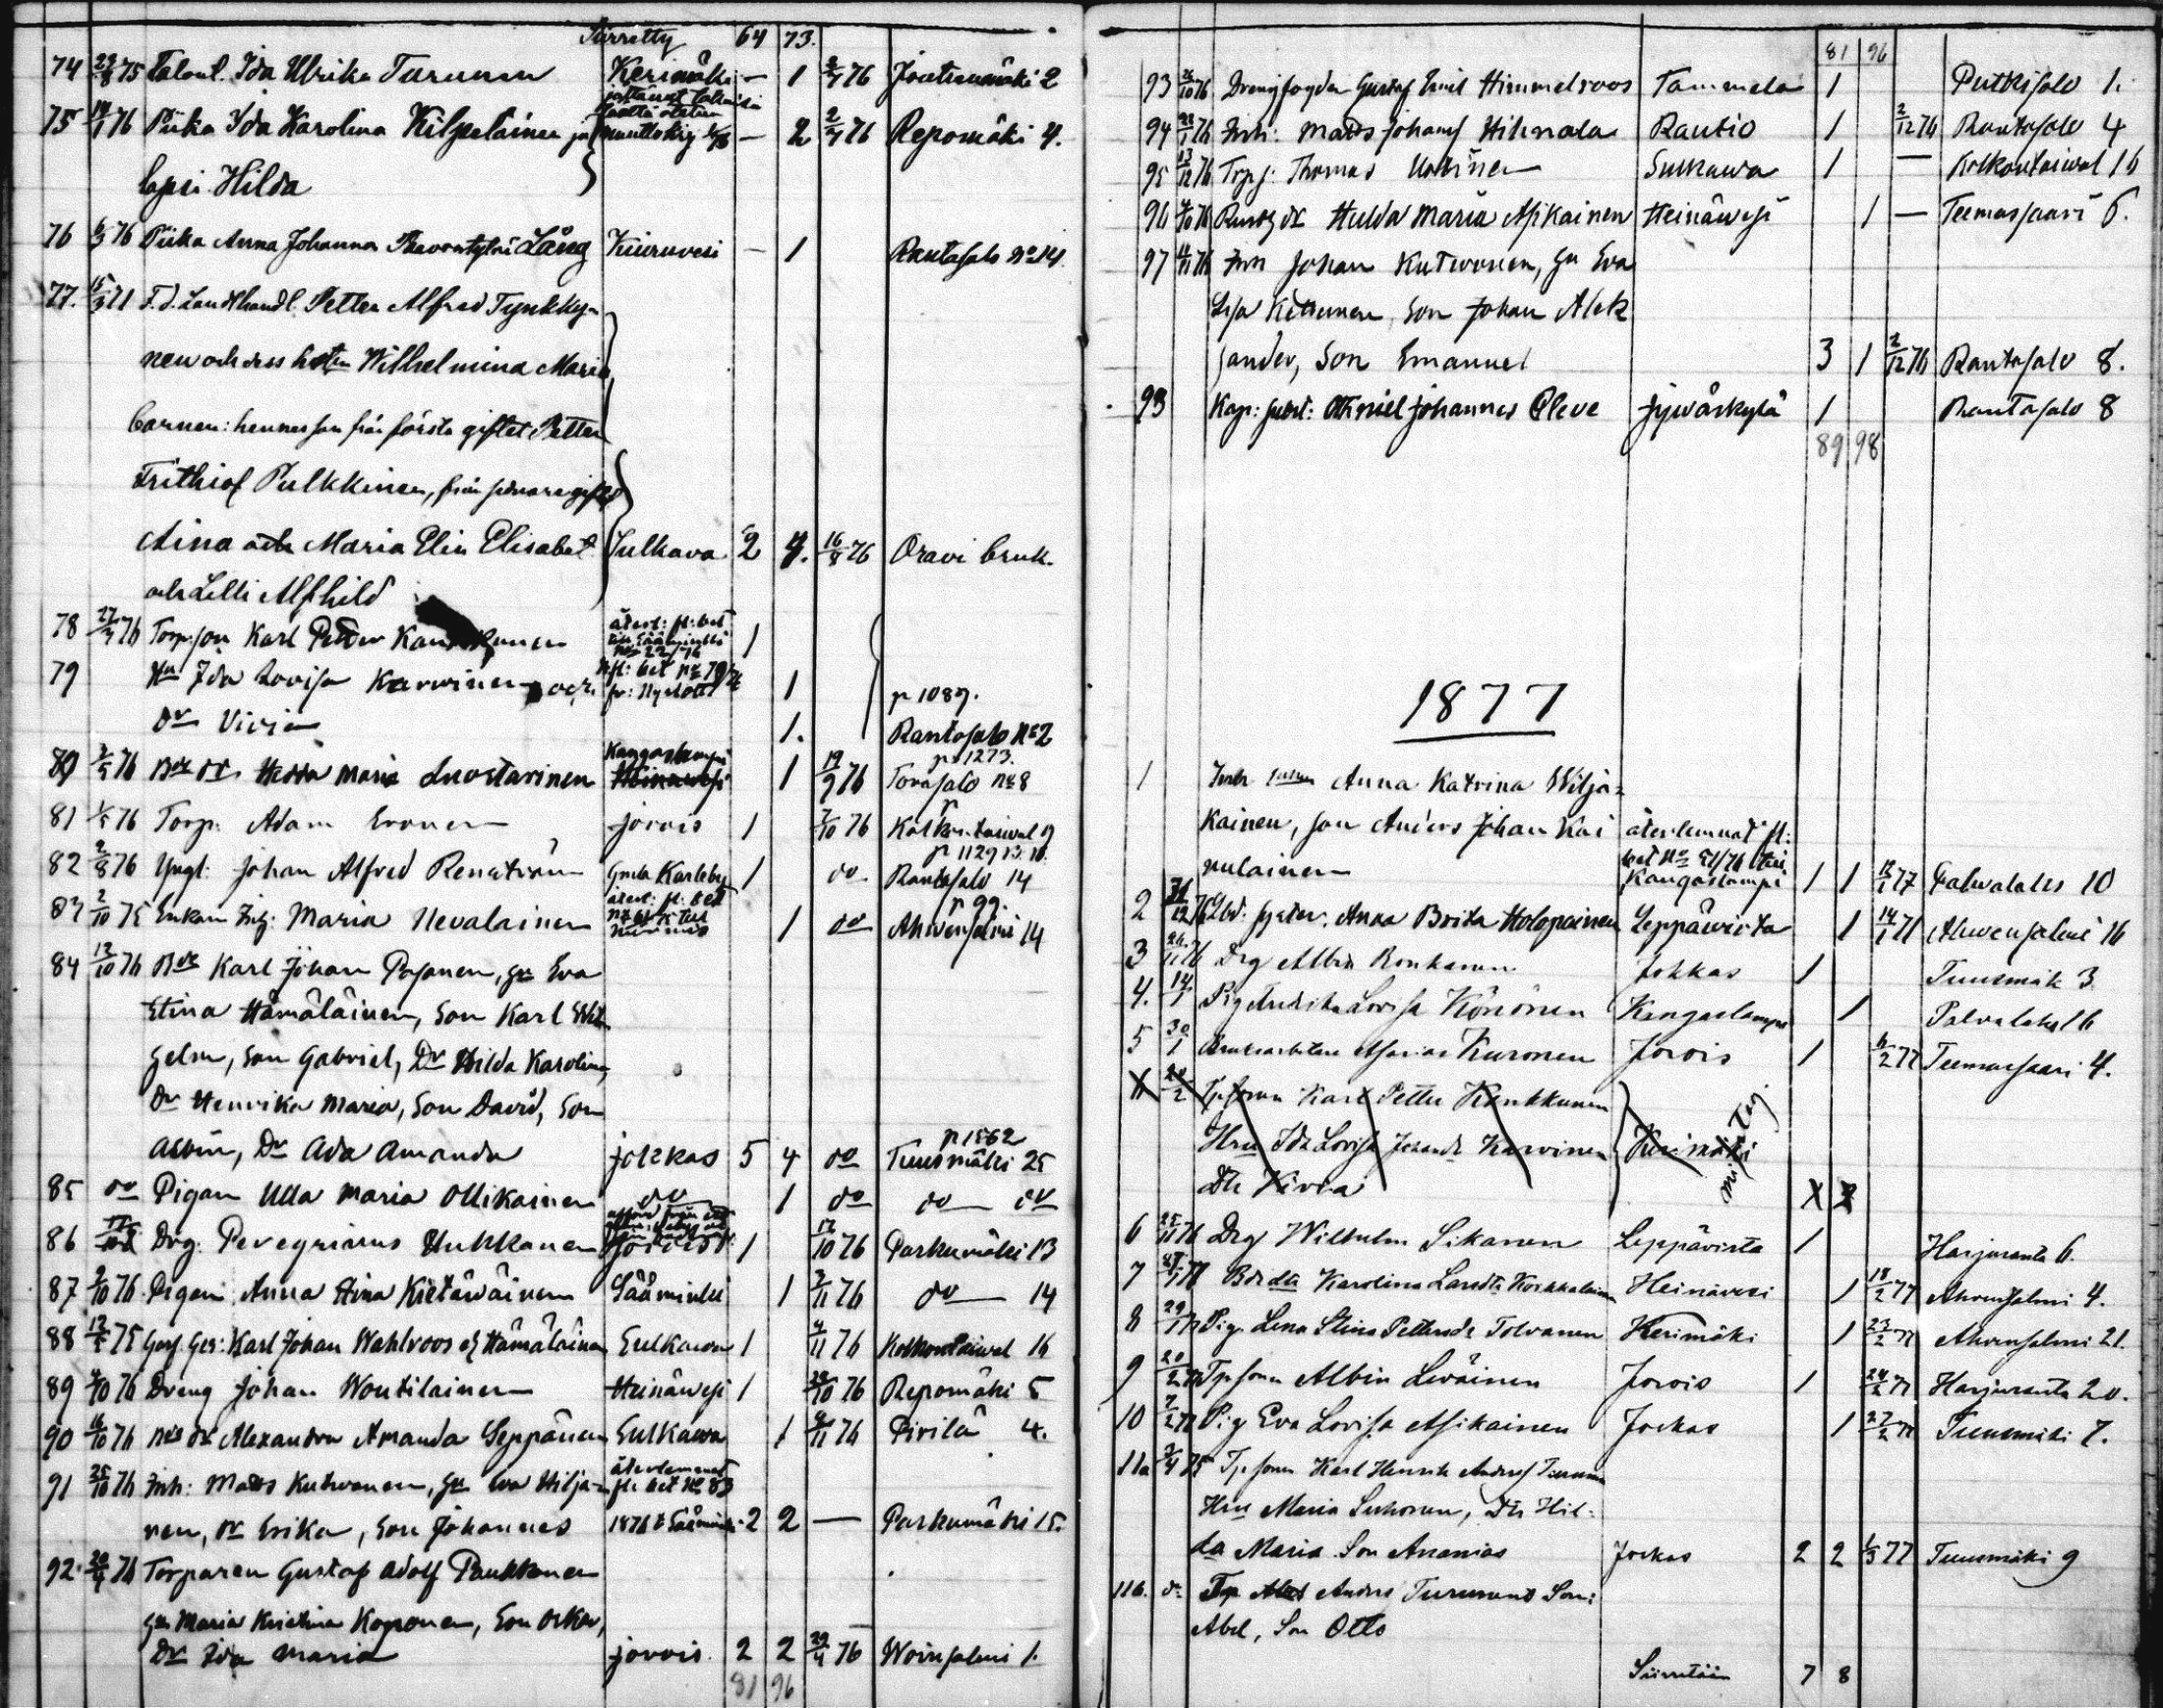 Siirretty 64 73.
74 29/8 75 Talont. Ida Ulrika Turunen Kerimäki — 1 2/7 76 Joutsenmäki 2
75 14/1 76 Piika Ida Karolina Kilpeläinen ja — 2 2/7 76 Repomäki 4.
lapsi Hilda
76 6/3 76 Piika Anna Johanna Paavontytär Lång Kiuruvesi — 1 Rantasalo No 14
77. 15/3 71 F.d. Landthandl. Petter Alfred Tynkky-
nen och dess hustru Wilhelmina Maria
barnen: hennes son från första giftet Petter
Frithiof Pulkkinen, från senare giftet
Aina och Maria Elin Elisabet Sulkava 2 4. 16/8 76 Oravi bruk.
och Lilli Alfhild
78 27/3 76 Torp.son Karl Petter Kankkunen 1
79 Hu Ida Lovisa Karvinen och 1 p 1089.
Dr 1. Rantasalo No 2
Kangaslampi p 1273.
80 2/5 76 Bde dr Hedda Maria Luostarinen Heinävesi 1 19/9 76 Torasalo No 8
81 1/5 76 Torp. Adam Eronen Jorois 1 7/10 76 Kolkontaival 9
p 1129 B. 10.
82 2/8 76 Yngl: Johan Alfred Renström Gmla Karleby 1 do Rantasalo 14
p 99.
83 2/10 75 Enkan Inh: Maria Nevalainen 1 do Ahvensalmi 14
84 12/10 76 Bde Karl Johan Pasanen, hu Eva
Stina Hämäläinen, Son Karl Wil
helm, Son Gabriel, Dr Hilda Karolina,
Dr Henrika Maria, Son David, Son
p 1562
Albin, Dr Ada Amanda Jokkas 5 4 do Tuusmäki 25
85 do Pigan Ulla Maria Ollikainen do 1 do do do
86 Drg. Peregrinus Hukkanen Jorois 1 12/10 76 Parkumäki 13
87 9/10 76 Pigan Anna Stina Kietäväinen Sääminki 1 2/11 76 do 14
88 12/5 75 Karl Johan Wahlroos Hämäläinen Sulkawa 1 4/11 76 Kolkontaival 16
89 4/10 76 Dreng Johan Woutilainen Heinävesi 1 28/10 76 Repomäki 5
90 16/10 76 Bde dr Alexandra Amanda Seppänen Sulkawa 1 4/11 76 Pirilä 4.
återlemnat
91 25/10 76 Inh: Matts Kutvonen, hu Eva Hilja- fl: bet No 83
nen, dr Erika, Son Johannes 1876 t Sääminki 2 2 — Parkumäki 15.
92. 20/4 76 Torparen Gustaf Adolf Paukkonen
hu Maria Kristina Koponen, Son Oskar,
Dr Ida Maria Jorois. 2 2 29/4 76 Woinsalmi 1.
81 96
81 96
93 76 Drengfogden Gustaf Emil Himmelroos Tammela 1 Putkisalo 1.
94 76 Inh: Matts Johans Hiltunen Rautio 1 2/12 76 Rantasalo 4
95 13/12 76 Torp: Thomas Sulkawa 1 — Kolkontaival 16
96 4/10 76 dr Hulda Maria Asikainen Heinävesi 1 — Teemassaari 6.
97 4/11 76 Inh Johan Kutvonen, hu Eva
Lisa Kettunen, Son Johan Alek
sander, Son Emanuel 3 1 2/12 76 Rantasalo 8.
98 Kap: Othniel Johannes Cleve Jywäskylä 1 Rantasalo 8
89 98
1877
1 Inh enkan Anna Katrina Wilja-
kainen, son Anders Johan Kai återlemnat fl:
bet No 51/76 till
nulainen Kangaslampi 1 1 13/1 77 Palvalaks 10
2 31/12 76 Anna Brita Holopainen Leppävirta 1 14/1 77 Ahvensalmi 16
3 26/11 76 Drg Albin Ronkanen Jokkas 1 Tuusmäk 3.
4. 14/1 Pig Lovisa Könönen Kangaslampi 1 Palvalaks 16
5 30/1 Bruksarbetare Kuronen Jorois 1 6/2 77 Teemassaari 4.
Tp.sonen Karl Petter Kankkunen
Hru Ida Lovisa Karvinen Kerimäki
Dtr
6 25/11 76 Drg Wilhelm Sikanen Leppävirta 1 Harjuranta 6.
7 77 Bde dtr Karolina Heinävesi 1 18/2 77 Ahvensalmi 4.
8 29/1 77 Pig. Lena Stina Pettersdr Tolvanen Kerimäki 1 23/2 77 Ahvensalmi 21.
9 20/2 77 Tp sonen Albin Leväinen Jorois 1 24/2 77 Harjuranta 20.
10 7/2 77 Pig Eva Lovisa Asikainen Jockas 1 27/2 77 Tuusmäki 7.
11a 3/4 75 Tp sonen Karl Henrik Andersf Turunen
Hru Maria Suhonen, Dtr Hil-
da Maria Son Ananias Jockas 2 2 1/3 77 Tuusmäki 9
11b. do Tp Anders Turunens Son:
Abel, Son Otto
Siirretään 7 8